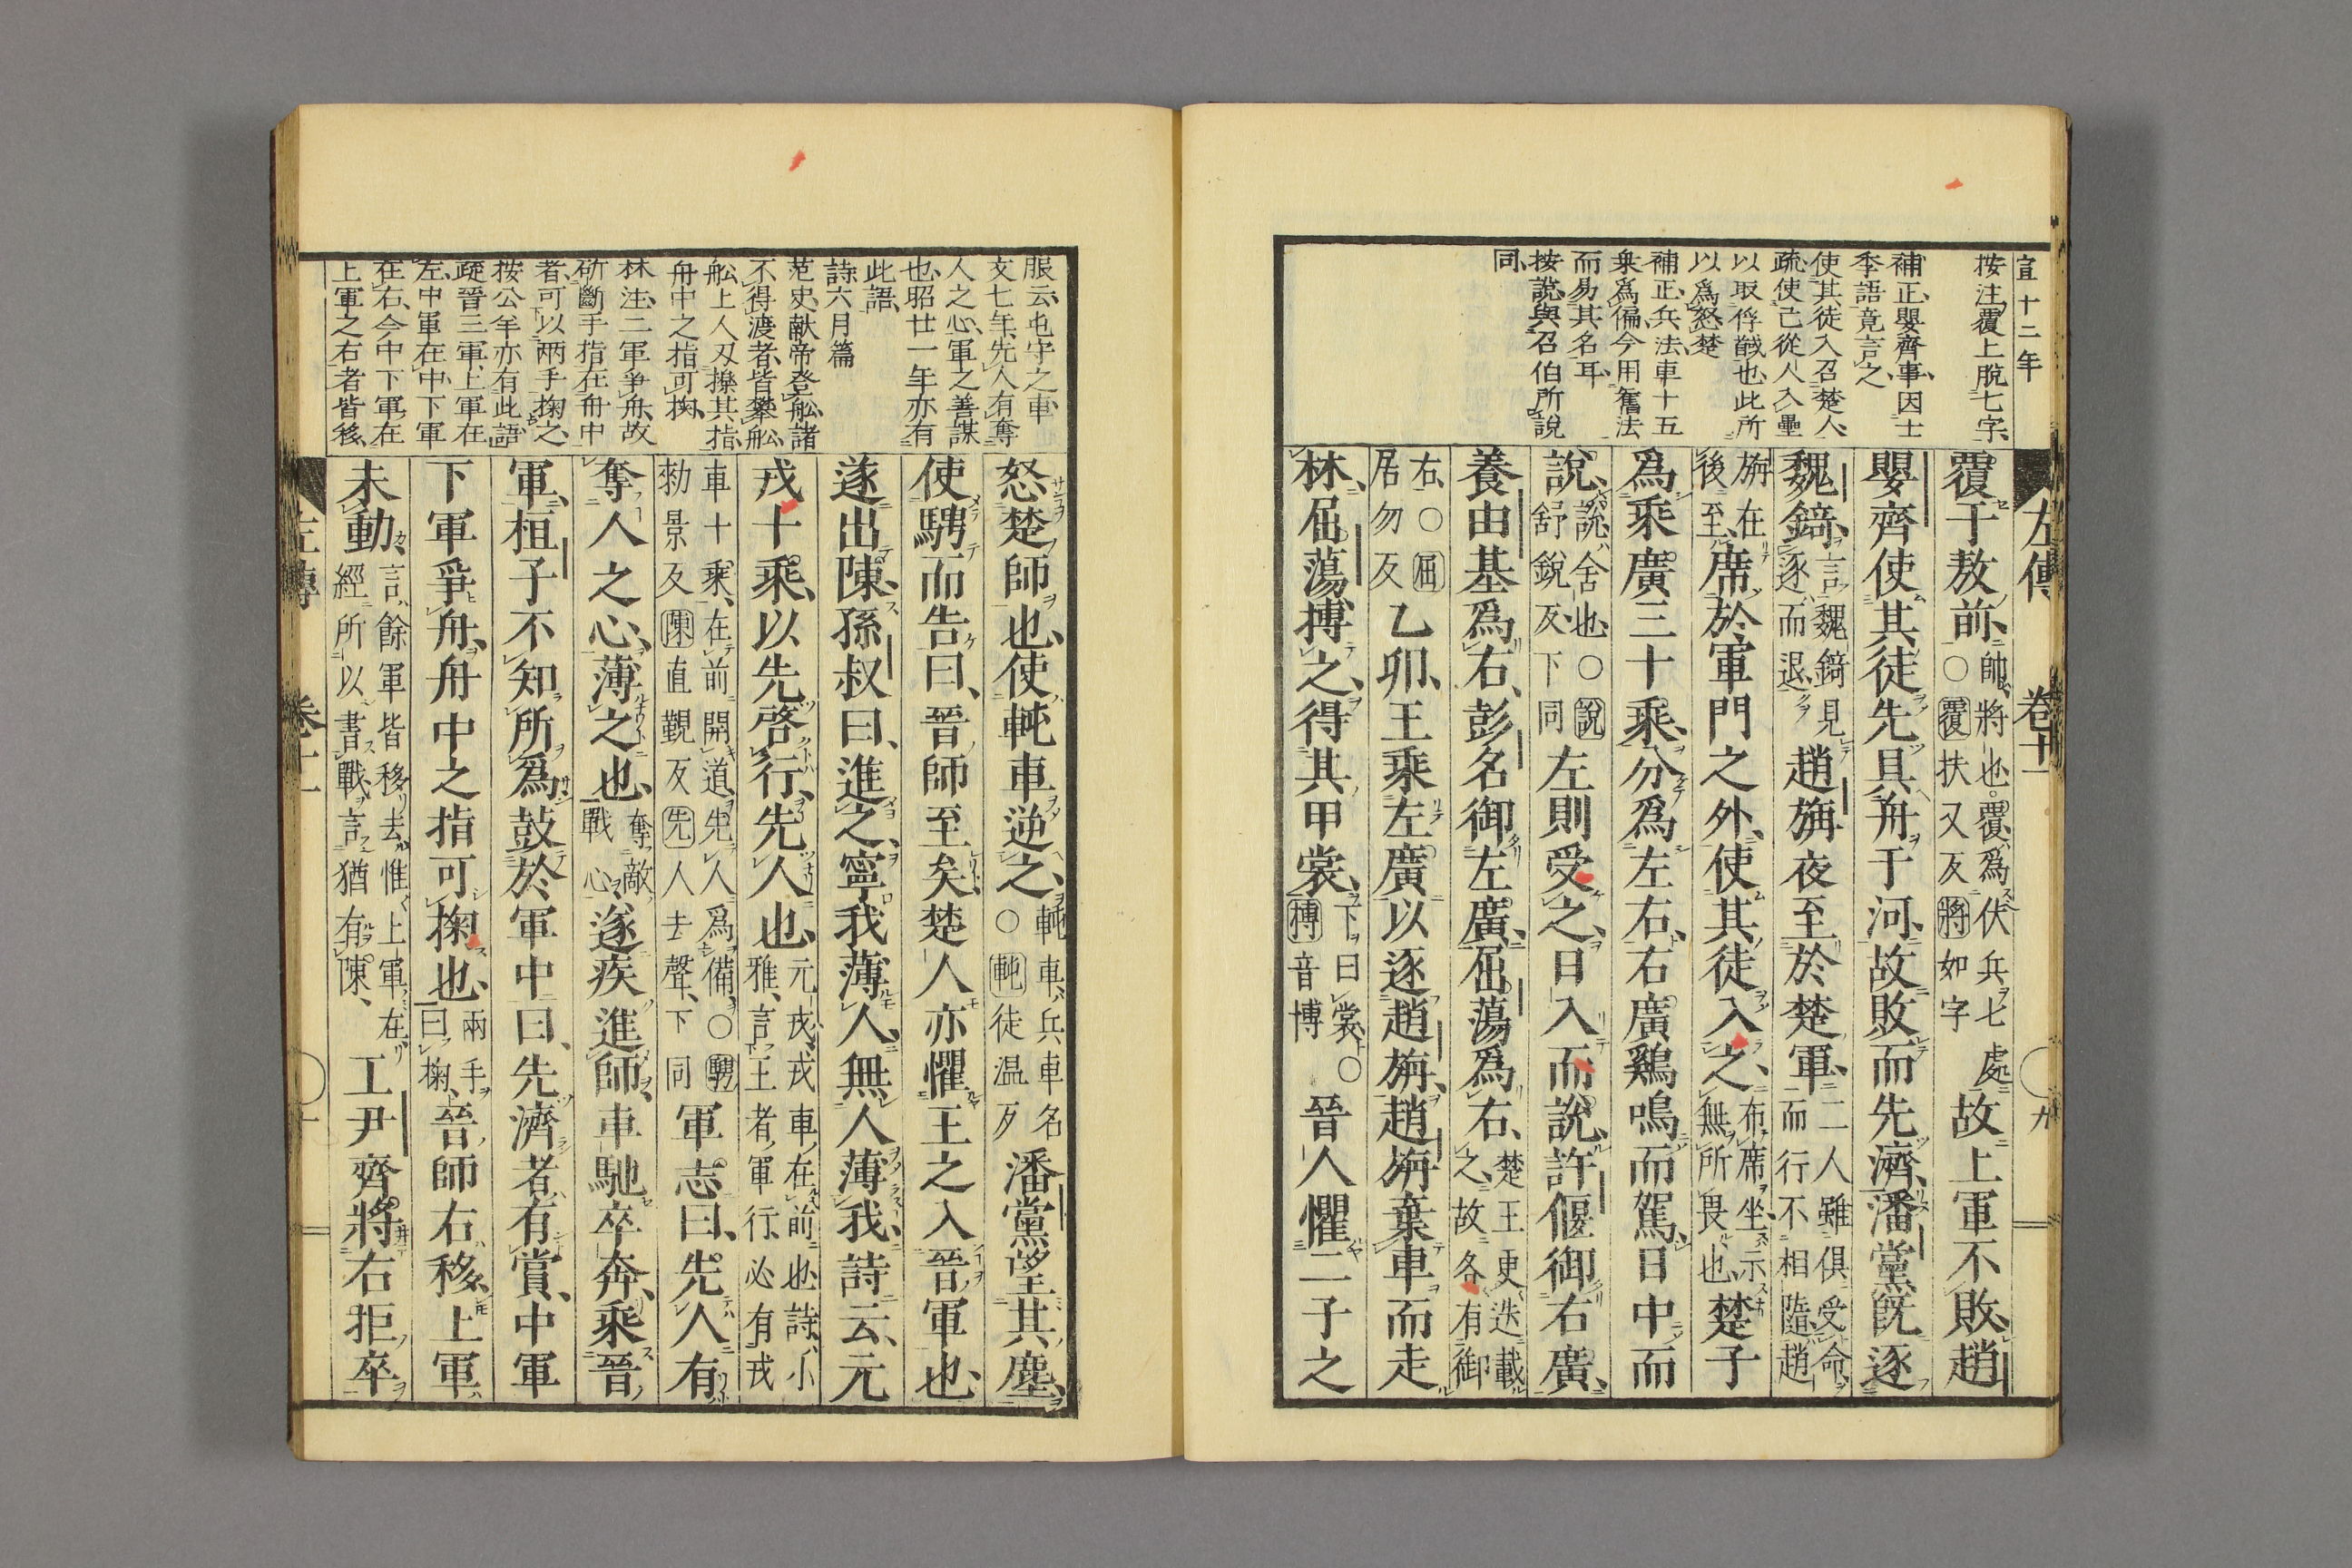 宣十二年
按注覆上脫七字
補正嬰齊事因士
季語竟言之
使其徒入召楚人
疏使已從人入壘
以取俘馘也此所
以爲怒楚
補正兵法車十五
乗爲偏今用舊法
而易其名耳
按說與召伯所說
同
左傳 卷十一 九
覆于敖前帥將也覆爲伏兵七處○覆扶又反將如字故上軍不敗趙
嬰齊使其徒先具舟于河故敗而先濟潘黨旣逐
魏錡言魏錡見逐而退趙旃夜至於楚軍二人雖俱受命而行不相隨趙
旃在後至席於軍門之外使其徒入之布席坐示無所畏也楚子
爲乘廣三十乘分爲左右右廣鷄鳴而駕日中而
說說舍也○說舒銳反下同左則受之日入而說許偃御右廣
養由基爲右彭名御左廣屈蕩爲右楚王更迭載之故各有御
右○屈居勿反乙卯王乘左廣以逐趙旃趙旃棄車而走
林屈蕩搏之得其甲裳下曰裳○搏音博晉人懼二子之
服云屯守之車
文七年先人有奪
人之心軍之善謀
也昭廿一年亦有
此語
詩六月篇
范史獻帝登舩諸
不得渡者皆攀舩
舩上人刄擽其指
舟中之指可掬
林注二軍爭舟故
斫斷手指在舟中
者可以兩手掬之
按公羊亦有此語
疏晉三軍上軍在
左中軍在中下軍
在右今中下軍在
上軍之右者皆移
怒楚師也使軘車逆之軘車兵車名○軘徒温反潘黨望其塵
使騁而告曰晉師至矣楚人亦懼王之入晉軍也
遂出陳孫叔曰進之寧我薄人無人薄我詩云元
戎十乘以先啓行先人也元戎戎車在前也詩小雅言王者軍行必有戎
車十乘在前開道先人爲備○騁勑景反陳直覲反先人去聲下同軍志曰先人有
奪人之心薄之也奪敵戰心遂疾進師車馳卒奔乘晉
軍桓子不知所爲鼓於軍中曰先濟者有賞中軍
下軍爭舟舟中之指可掬也兩手曰掬晉師右移上軍
未動言餘軍皆移去惟上軍在經所以書戰言猶有陳工尹齊將右拒卒
左傳 卷十一 十